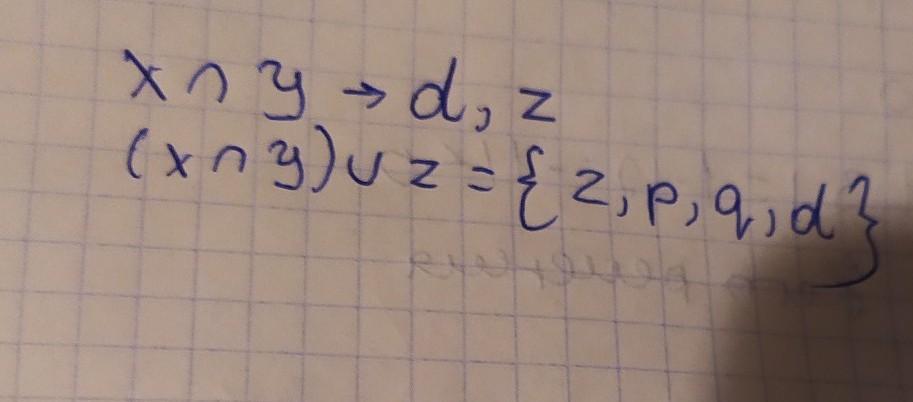 x ∩ y → d, z
(x ∩ y) ∪ z = {z, p, q, d}